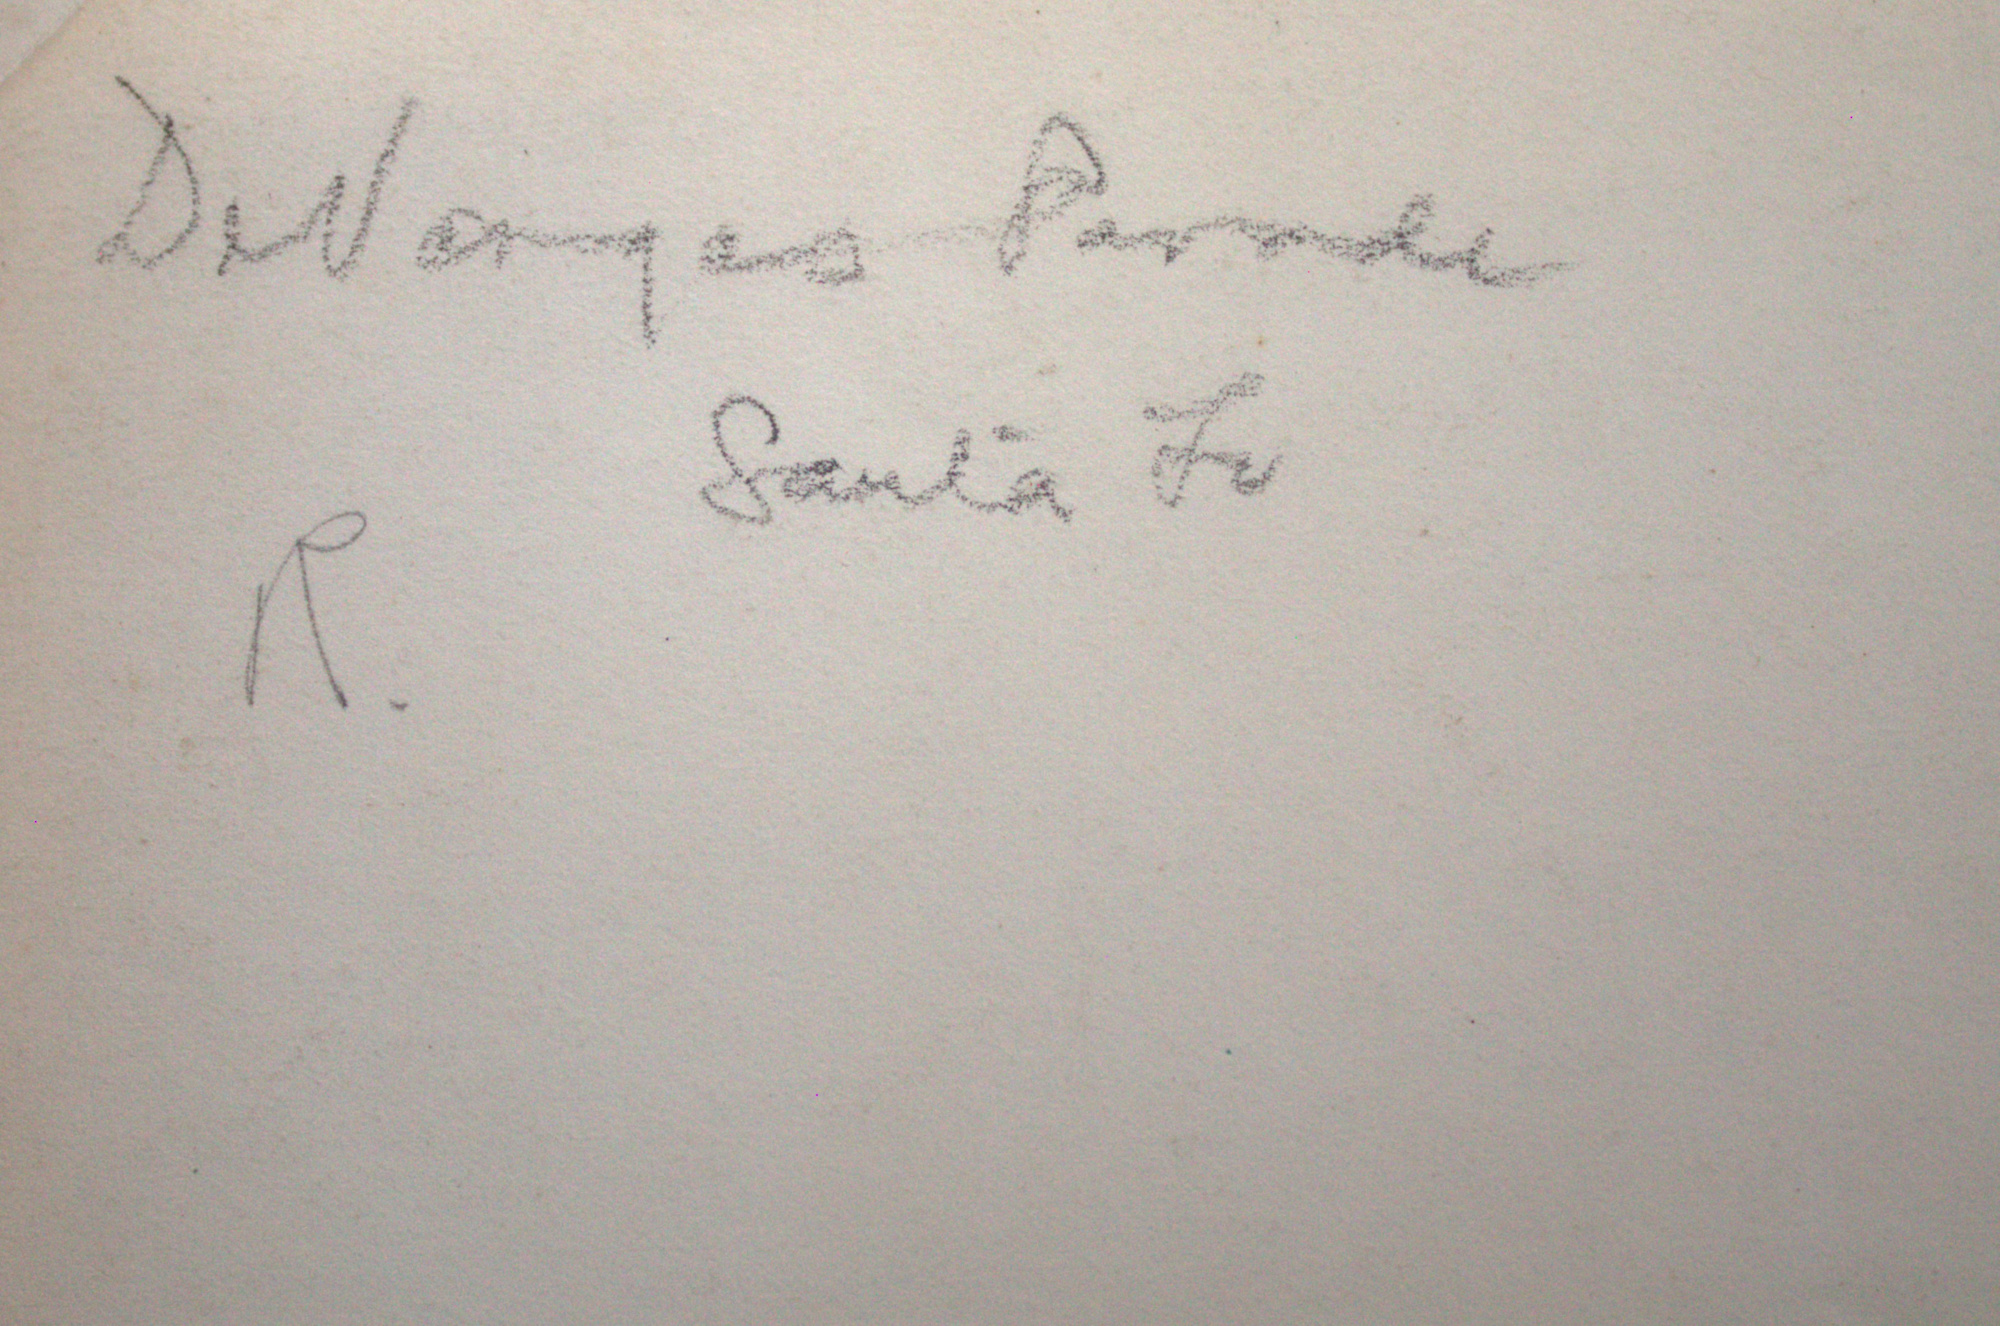 DeVargas Parade
Santa Fe
R.